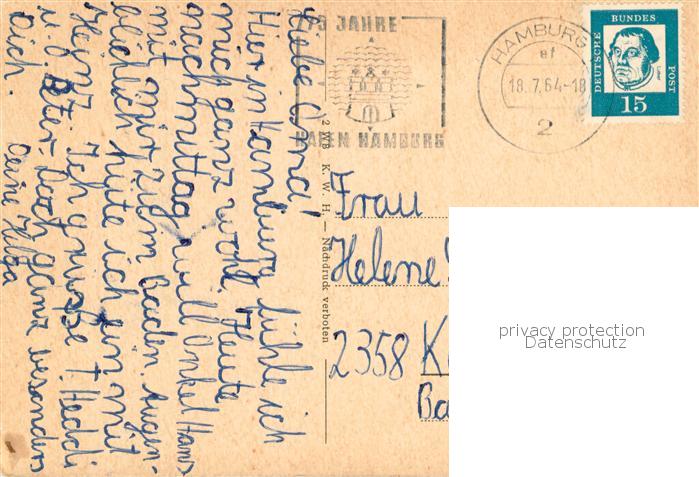 Liebe Oma!
Hier in Hamburg fühle ich
mich ganz wohl. Heute
nachmittag will Onkel Hans
mit mir zum Baden. Augen-
blicklich hüte ich ein mit
Heinz. Ich grüße T. Heddi
u. O. Peter. Doch ganz besonders
Dich.
Deine Helga
2 WB K. W. H. — Nachdruck verboten
75 JAHRE
HAFEN HAMBURG
HAMBURG
18.7.64-18
2
DEUTSCHE
BUNDES
POST
Luther
15
Frau
Helene
2358 K
Ba
privacy protection
Datenschutz